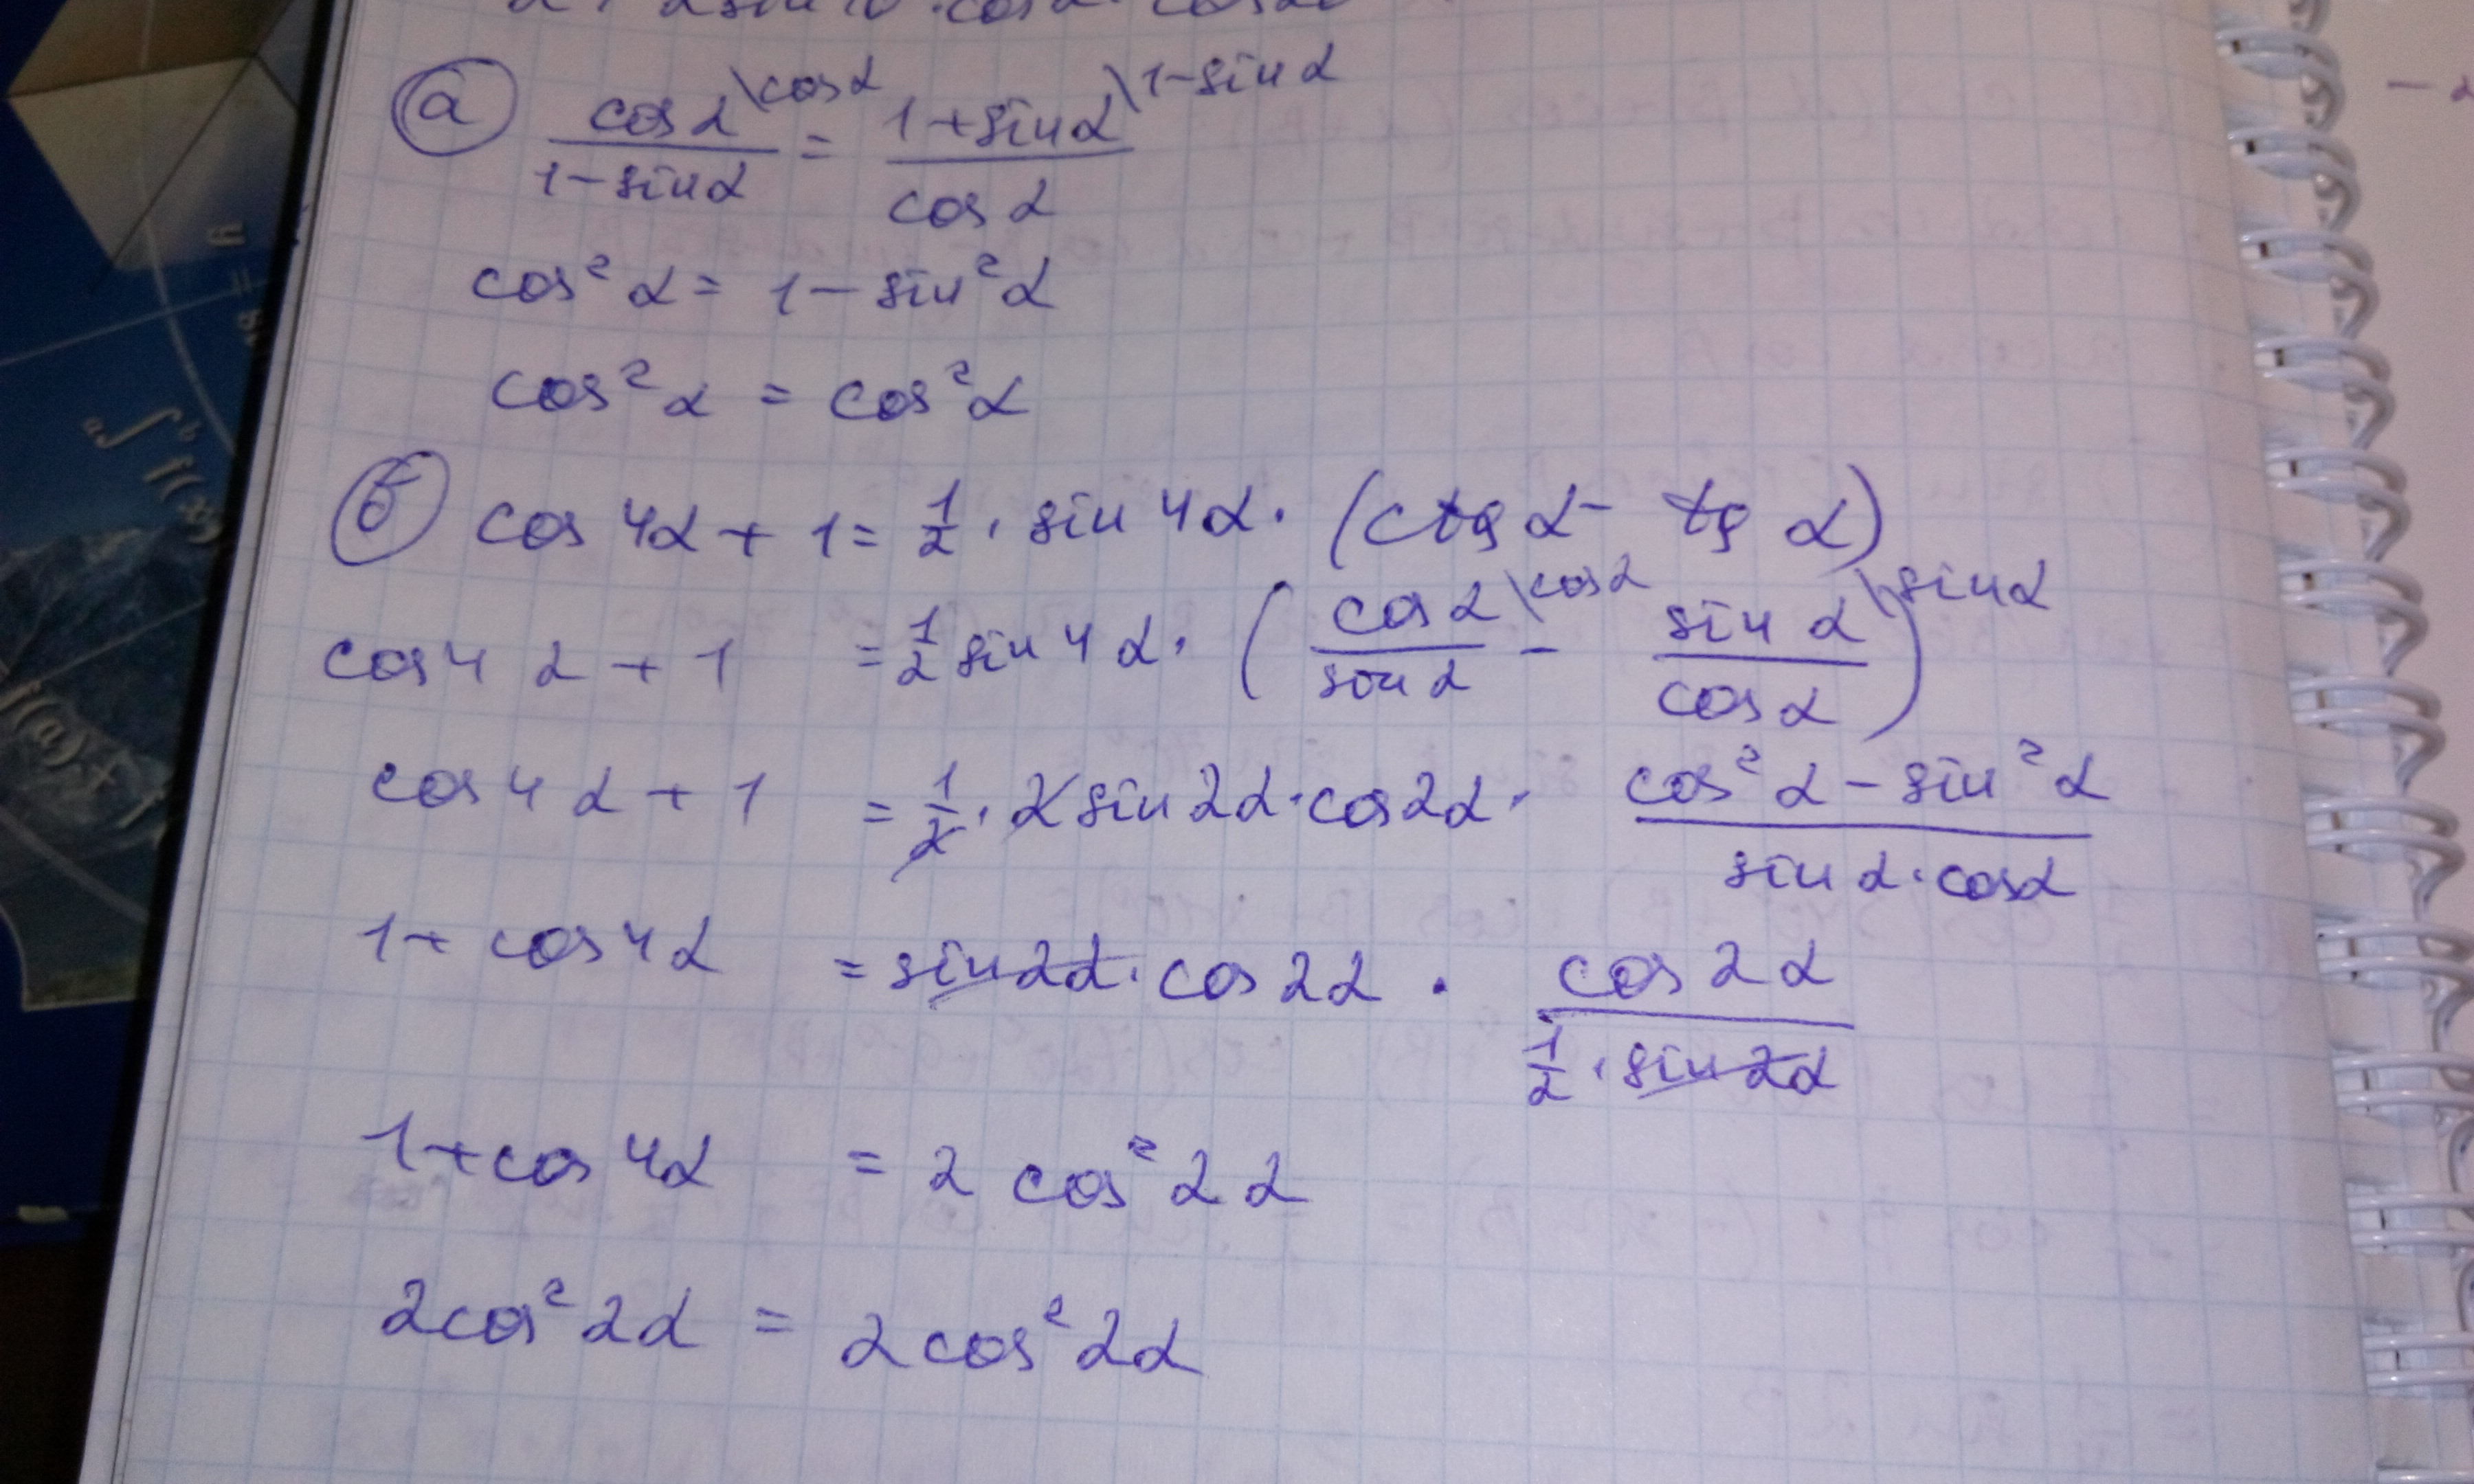 а) cosα\cosα / 1-sinα = 1+sinα\1-sinα / cosα
cos²α = 1-sin²α
cos²α = cos²α
б) cos4α+1 = 1/2 · sin4α · (ctgα - tgα)
cos4α+1 = 1/2 sin4α · (cosα\cosα / sinα - sinα\sinα / cosα)
cos4α+1 = 1/2 · 2sin2α · cos2α · cos²α - sin²α / sinα · cosα
1+cos4α = sin2α · cos2α · cos2α / 1/2 · sin2α
1+cos4α = 2cos²2α
2cos²2α = 2cos²2α